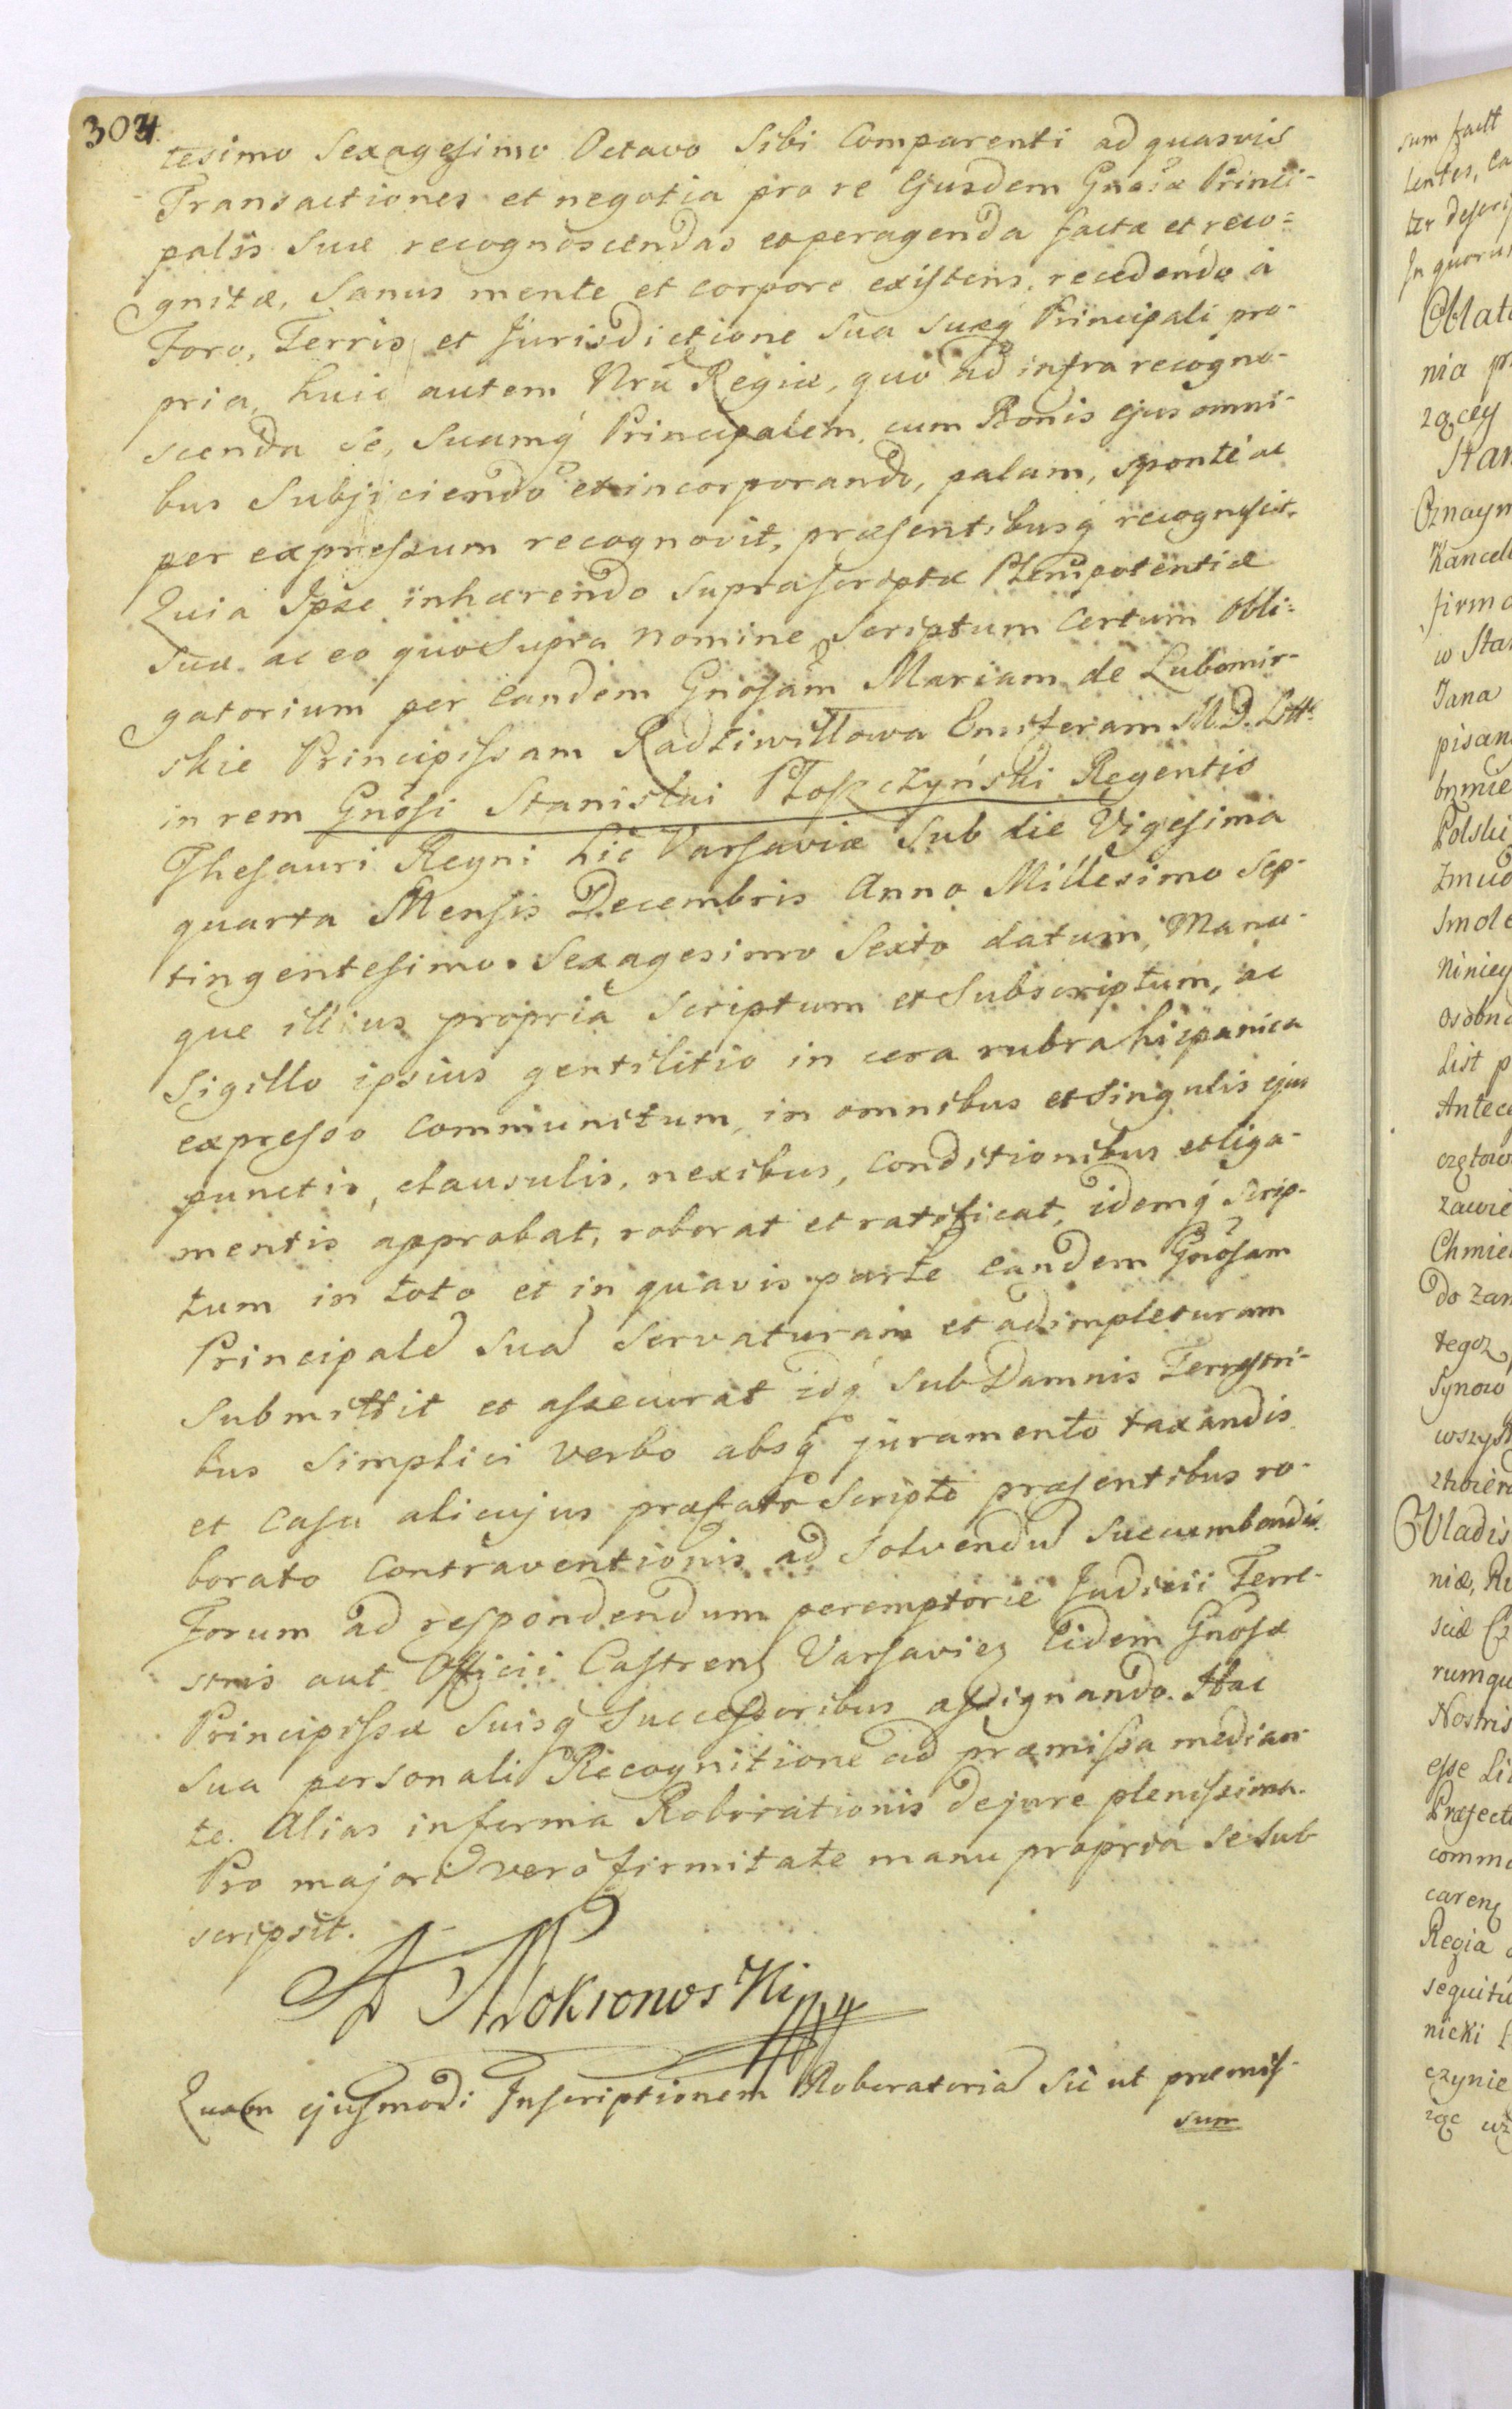 304
tesimo Sexagesimo Octavo Sibi Comparenti ad quasvis
Transactiones et negotia pro re Ejusdem Gnosæ Princi-
palis Suæ recognoscendas et peragenda facta et reco=
gnitæ, Sanus mente et corpore existens, recedendo à
Foro, Terris et Jurisdictione Sua suæq́ Principali pro-
pria, huic autem Nrũ Regiæ, quo ad infra recogno-
scenda se, Suamq́ Principalem, cum Bonis ejus omni-
bus Subjiciendo et incorporando, palam, sponte ac
per expressum recognovit, præsentibusq́ recognoscit.
Quia Ipse inhærendo suprascriptæ Plenipotentiæ
Suæ ac eo quo Supra nomine Scriptum Certum Obli=
gatorium per Eandem Gnosam Mariam de Lubomir-
skie Principissam Radziwiłłowa Ensiferam M.D. Litt
in rem Gnosi Stanislai Płoszczyński Regentis
Thesauri Regni hic Varsaviæ Sub die Vigesima
quarta Mensis Decembris Anno Millesimo Sep-
tingentesimo Sexagesimo Sexto datum, Manu-
que illius propria Scriptum et Subscriptum, ac
Sigillo ipsius gentilitio in cera rubra hispanica
expresso Communitum, in omnibus et singulis ejus
punctis, clausulis, nexibus, Conditionibus et liga-
mentis approbat, roborat et ratificat, idemq́ Scrip-
tum in toto et in quavis parte Eandem Gnosam
Principalẽ Suã Servaturam et adimpleturam
Submittit et assecurat idq́ sub Damnis Terrestri-
bus Simplici Verbo absq́ juramento taxandis
et Casu alicujus præfato Scripto præsentibus ro-
borato Contraventionis ad Solvendũ Succumbendis
Forum ad respondendum peremptorie Judicii Terre-
stris aut Officii Castrens Varsavien Eidem Gnosæ
Principissæ Suisq́ Successoribus assignando. Hac
Sua personali Recognitione ad præmissa median-
te. Alias in forma Roborationis de jure plenissima.
Pro majori vero firmitate manu propria se Sub-
scripsit.
A Mokronowski
Quam ejusmodi Inscriptionem Roboratoriã Sic ut præmis-
sum
sum fact
ter descri
In quorum
Oblat
nia pr
zącey
Stan
Oznaym
Kancel
firmo
w Sta
Jana
pisan
Polski
Żmud
Smole
Niniey
osobno
List p
Antece
zawie
Chmie
do zam
tegoż
Synow
wszys
Vladis
niæ, Ru
rumqu
Nostris
esse Li
Præfect
comm
Regia
sequitu
nicki
czynie